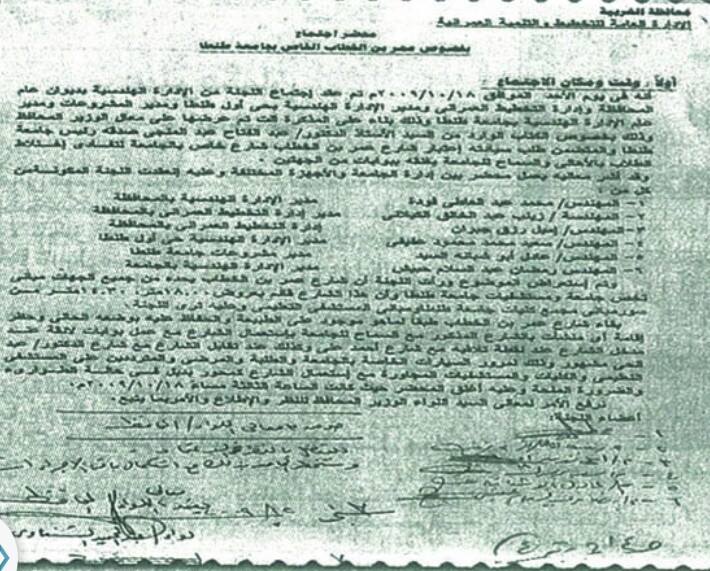 محافظة الغربية
الإدارة العامة للتخطيط والتنمية العمرانية
محضر اجتماع
بخصوص عمر بن الخطاب الخاص بجامعة طنطا
أولاً : وقت ومكان الاجتماع
انه في يوم الأحد الموافق ٢٠٠٩/١٠/١٨م تم عقد إجتماع اللجنة من الإدارة الهندسية بديوان عام
المحافظة وإدارة التخطيط العمراني ومدير الإدارة الهندسية بحي أول طنطا ومدير المشروعات ومدير
عام الإدارة الهندسية بجامعة طنطا وذلك بناء على المذكرة التي تم عرضها على معالي الوزير المحافظ
وذلك بخصوص الكتاب الوارد من السيد الأستاذ الدكتور/ عبد الفتاح عبد المنجي صدقه رئيس جامعة
طنطا والمتضمن طلب سيادته إعتبار شارع عمر بن الخطاب شارع خاص بالجامعة لتفادي إختلاط
الطلاب بالأهالي والسماح للجامعة بغلقه ببوابات من الجهتين .
وقد أشر معاليه بعمل محضر بين إدارة الجامعة والأجهزة المختلفة وعليه إنعقدت اللجنة المكونة من
كل من :
١- المهندس/ محمد عبد العاطي فودة مدير الإدارة الهندسية بالمحافظة
٢- المهندسة / زينب عبد الخالق الكيلاني مدير إدارة التخطيط العمراني بالمحافظة
٣- المهندس/ إميل رزق جبران إدارة التخطيط العمراني بالمحافظة
٤- المهندس/ سعيد محمد محمود عفيفي مدير الإدارة الهندسية حي أول طنطا
٥- المهندس/ عادل أبو شبانه السيد مدير مشروعات جامعة طنطا
٦- المهندس/ رمضان عبد السلام حبيش مدير الإدارة الهندسية بالجامعة
وتم إستعراض الموضوع ورأت اللجنة أن شارع عمر بن الخطاب يحده من جميع الجهات مباني
تخص جامعة ومستشفيات جامعة طنطا وأن هذا الشارع قائم بعروض ١٨.٠٠متر، متر من
سور مباني مجمع كليات جامعة طنطا ومباني المستشفى التعليمي وعليه ترى اللجنة :
بقاء شارع عمر بن الخطاب طبقاً لما هو موجود على الطبيعة والحفاظ عليه بوضعه الحالي وحظر
إقامة أي منشآت بالشارع المذكور مع السماح للجامعة بإستعمال الشارع مع عمل بوابات لائقة عند
مدخل الشارع عند نقطة تلاقيه مع شارع أحمد وكذلك عند تقابل الشارع مع شارع الدكتور/ عبد
الحي مشهور وذلك لمرور السيارات الخاصة بالجامعة والطلبة والمرضى والمترددين على المستشفى
التعليمي والكليات والمستشفيات المجاورة مع إستعمال الشارع كمحور بديل في حالة الطوارىء
والضرورة الملحة وعليه أغلق المحضر حيث كانت الساعة الثالثة مساء ٢٠٠٩/١٠/١٨م.
ترفع الأمر لمعالي السيد اللواء الوزير المحافظ للنظر والإطلاع والأمر بما يتبع .
أعضاء اللجنة:
١-
٢-
٣-
٤-
٥-
٦-